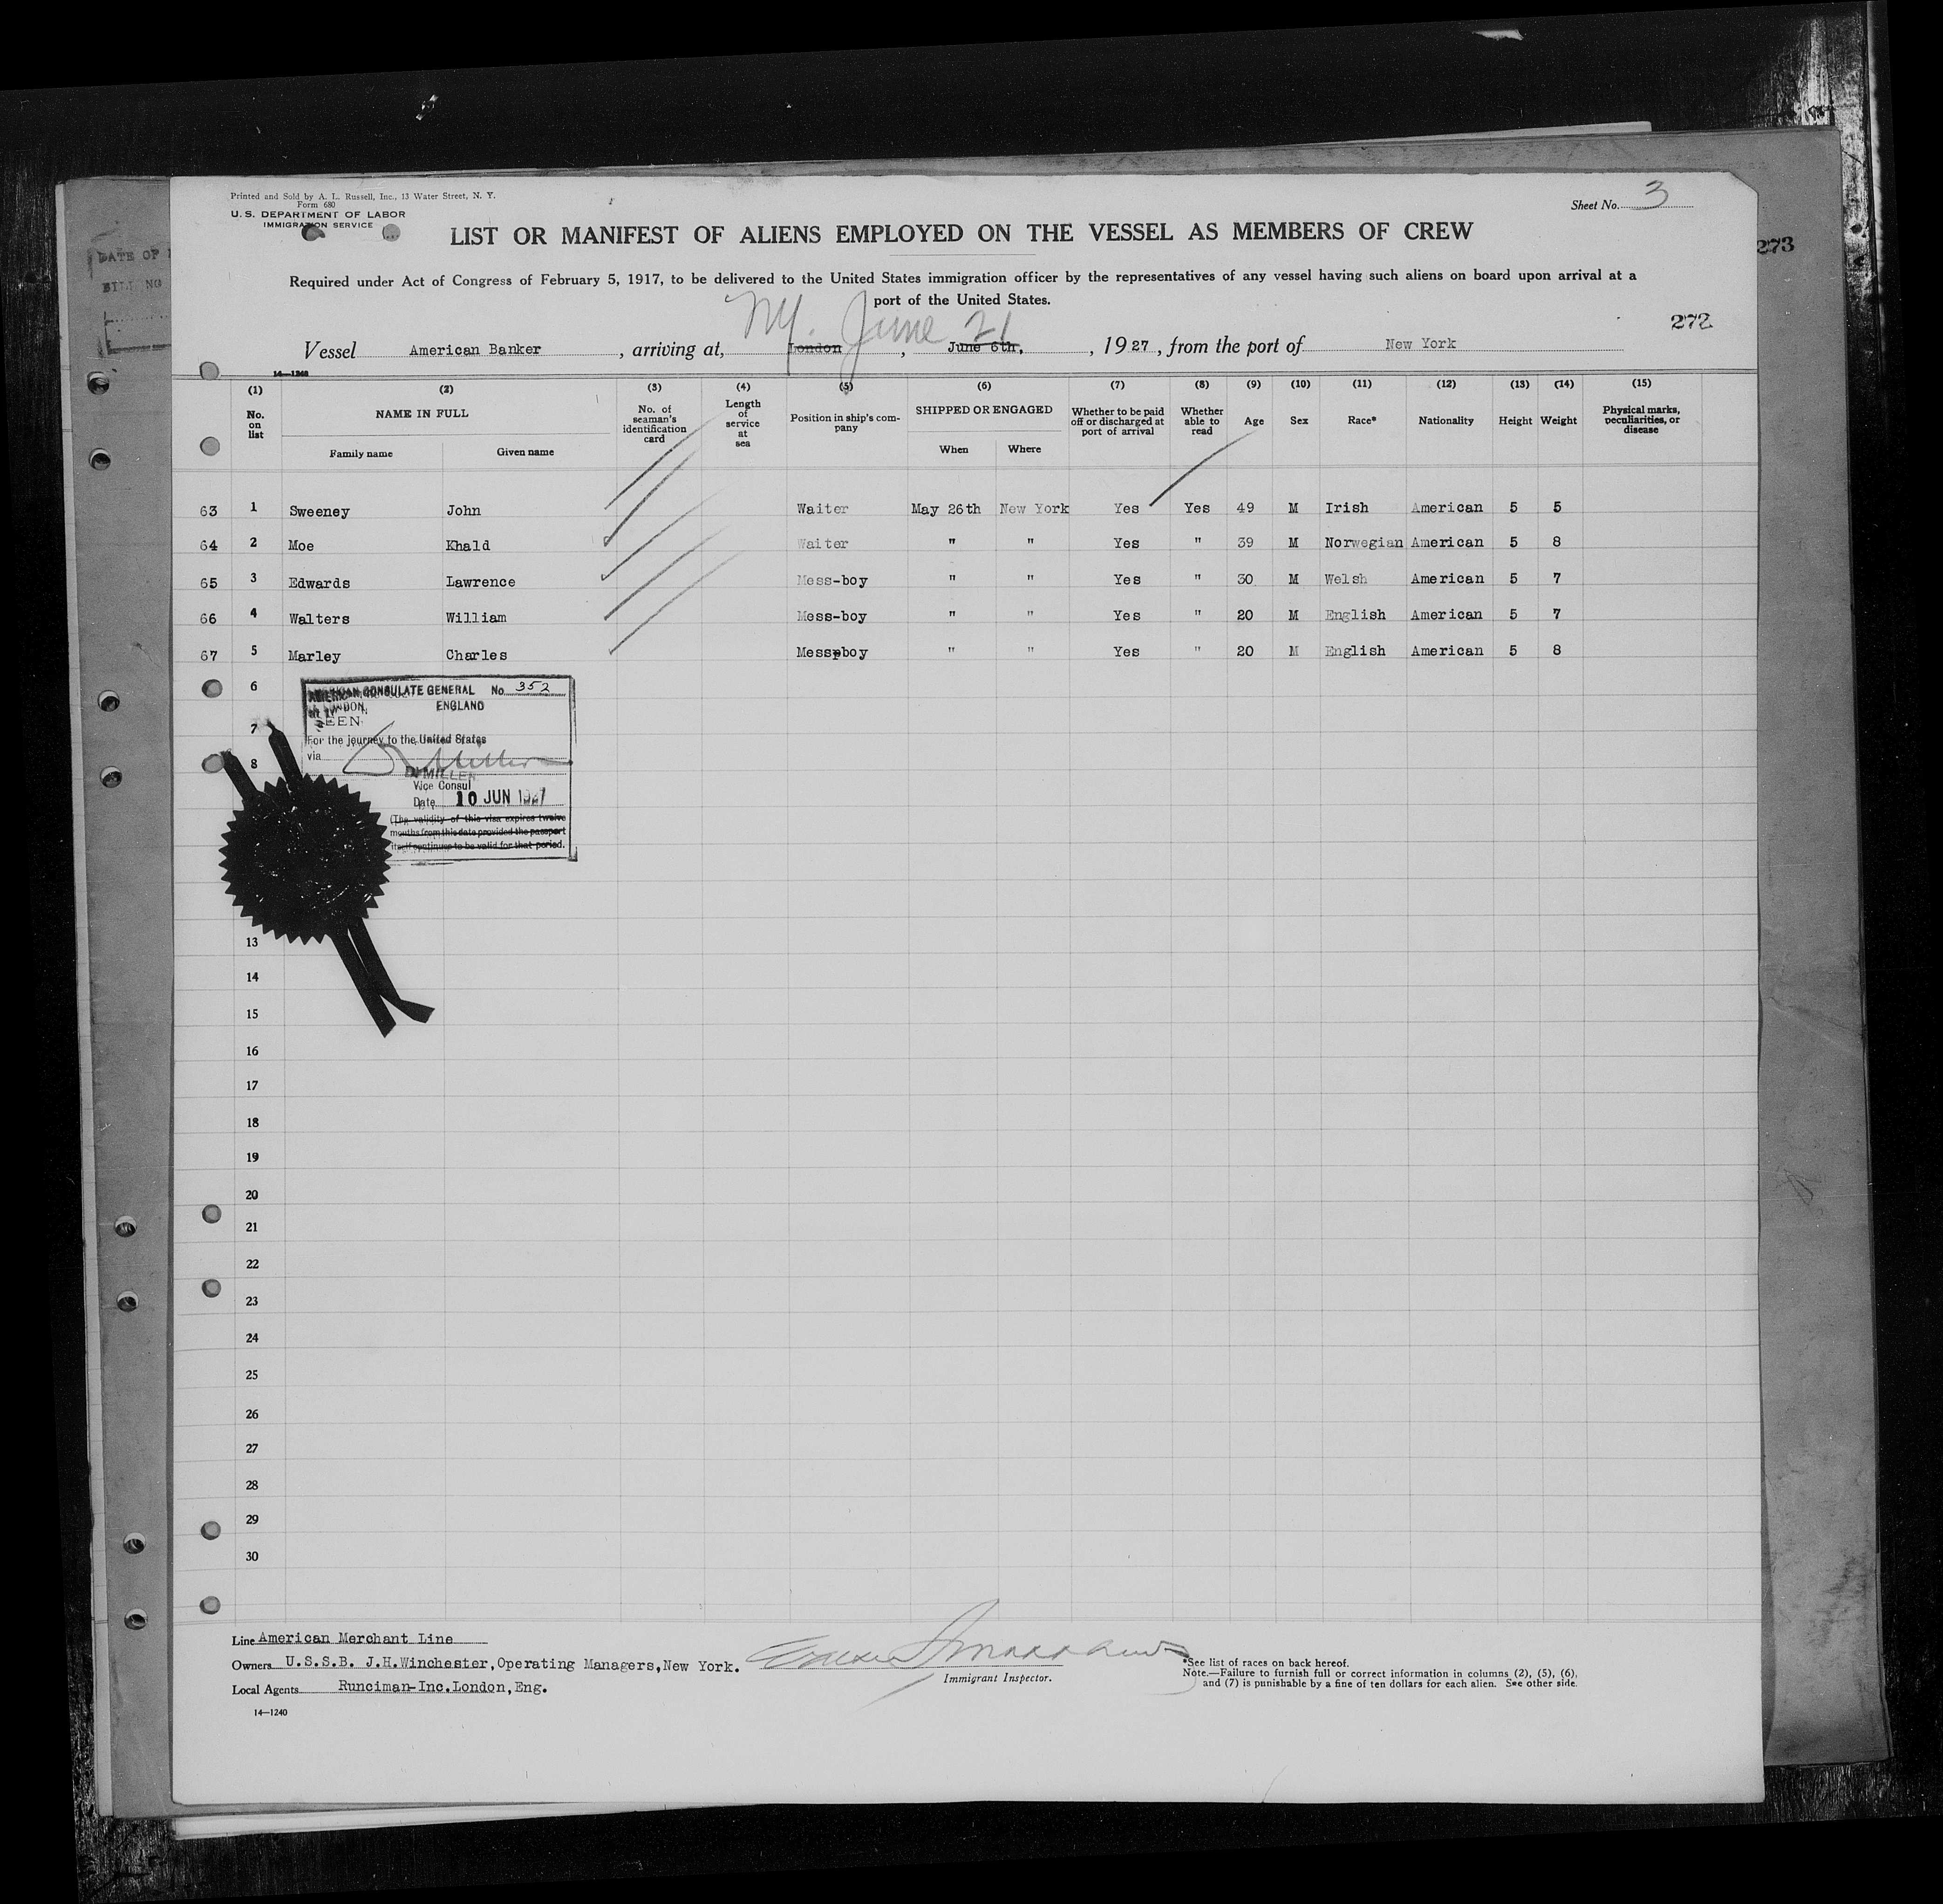 Printed and Sold by A. L. Russell, Inc., 13 Water Street, N. Y.
Form 680
U. S. DEPARTMENT OF LABOR
IMMIGRATION SERVICE
Sheet No. 3
LIST OR MANIFEST OF ALIENS EMPLOYED ON THE VESSEL AS MEMBERS OF CREW
273
DATE OF
Required under Act of Congress of February 5, 1917, to be delivered to the United States immigration officer by the representatives of any vessel having such aliens on board upon arrival at a
port of the United States.
272
NY. June 21
Vessel American Banker , arriving at, London , June 6th, , 1927 , from the port of New York
14—1240
(1) (2) (3) (4) (5) (6) (7) (8) (9) (10) (11) (12) (13) (14) (15)
No. on list NAME IN FULL No. of seaman's identification card Length of service at sea Position in ship's company SHIPPED OR ENGAGED Whether to be paid off or discharged at port of arrival Whether able to read Age Sex Race* Nationality Height Weight Physical marks, peculiarities, or disease
Family name Given name When Where
63 1 Sweeney John Waiter May 26th New York Yes Yes 49 M Irish American 5 5
64 2 Moe Khald Waiter " " Yes " 39 M Norwegian American 5 8
65 3 Edwards Lawrence Mess-boy " " Yes " 30 M Welsh American 5 7
66 4 Walters William Mess-boy " " Yes " 20 M English American 5 7
67 5 Marley Charles Messpboy " " Yes " 20 M English American 5 8
6
7
8
AMERICAN CONSULATE GENERAL No. 352
LONDON, ENGLAND
SEEN
For the journey to the United States
via
Vice Consul
Date 10 JUN 1927
(The validity of this visa expires twelve
months from this date provided the passport
itself continues to be valid for that period.
13
14
15
16
17
18
19
20
21
22
23
24
25
26
27
28
29
30
Line American Merchant Line
Owners U.S.S.B. J.H.Winchester,Operating Managers,New York.
Local Agents Runciman-Inc.London,Eng.
Immigrant Inspector.
*See list of races on back hereof.
Note.—Failure to furnish full or correct information in columns (2), (5), (6),
and (7) is punishable by a fine of ten dollars for each alien. See other side.
14—1240